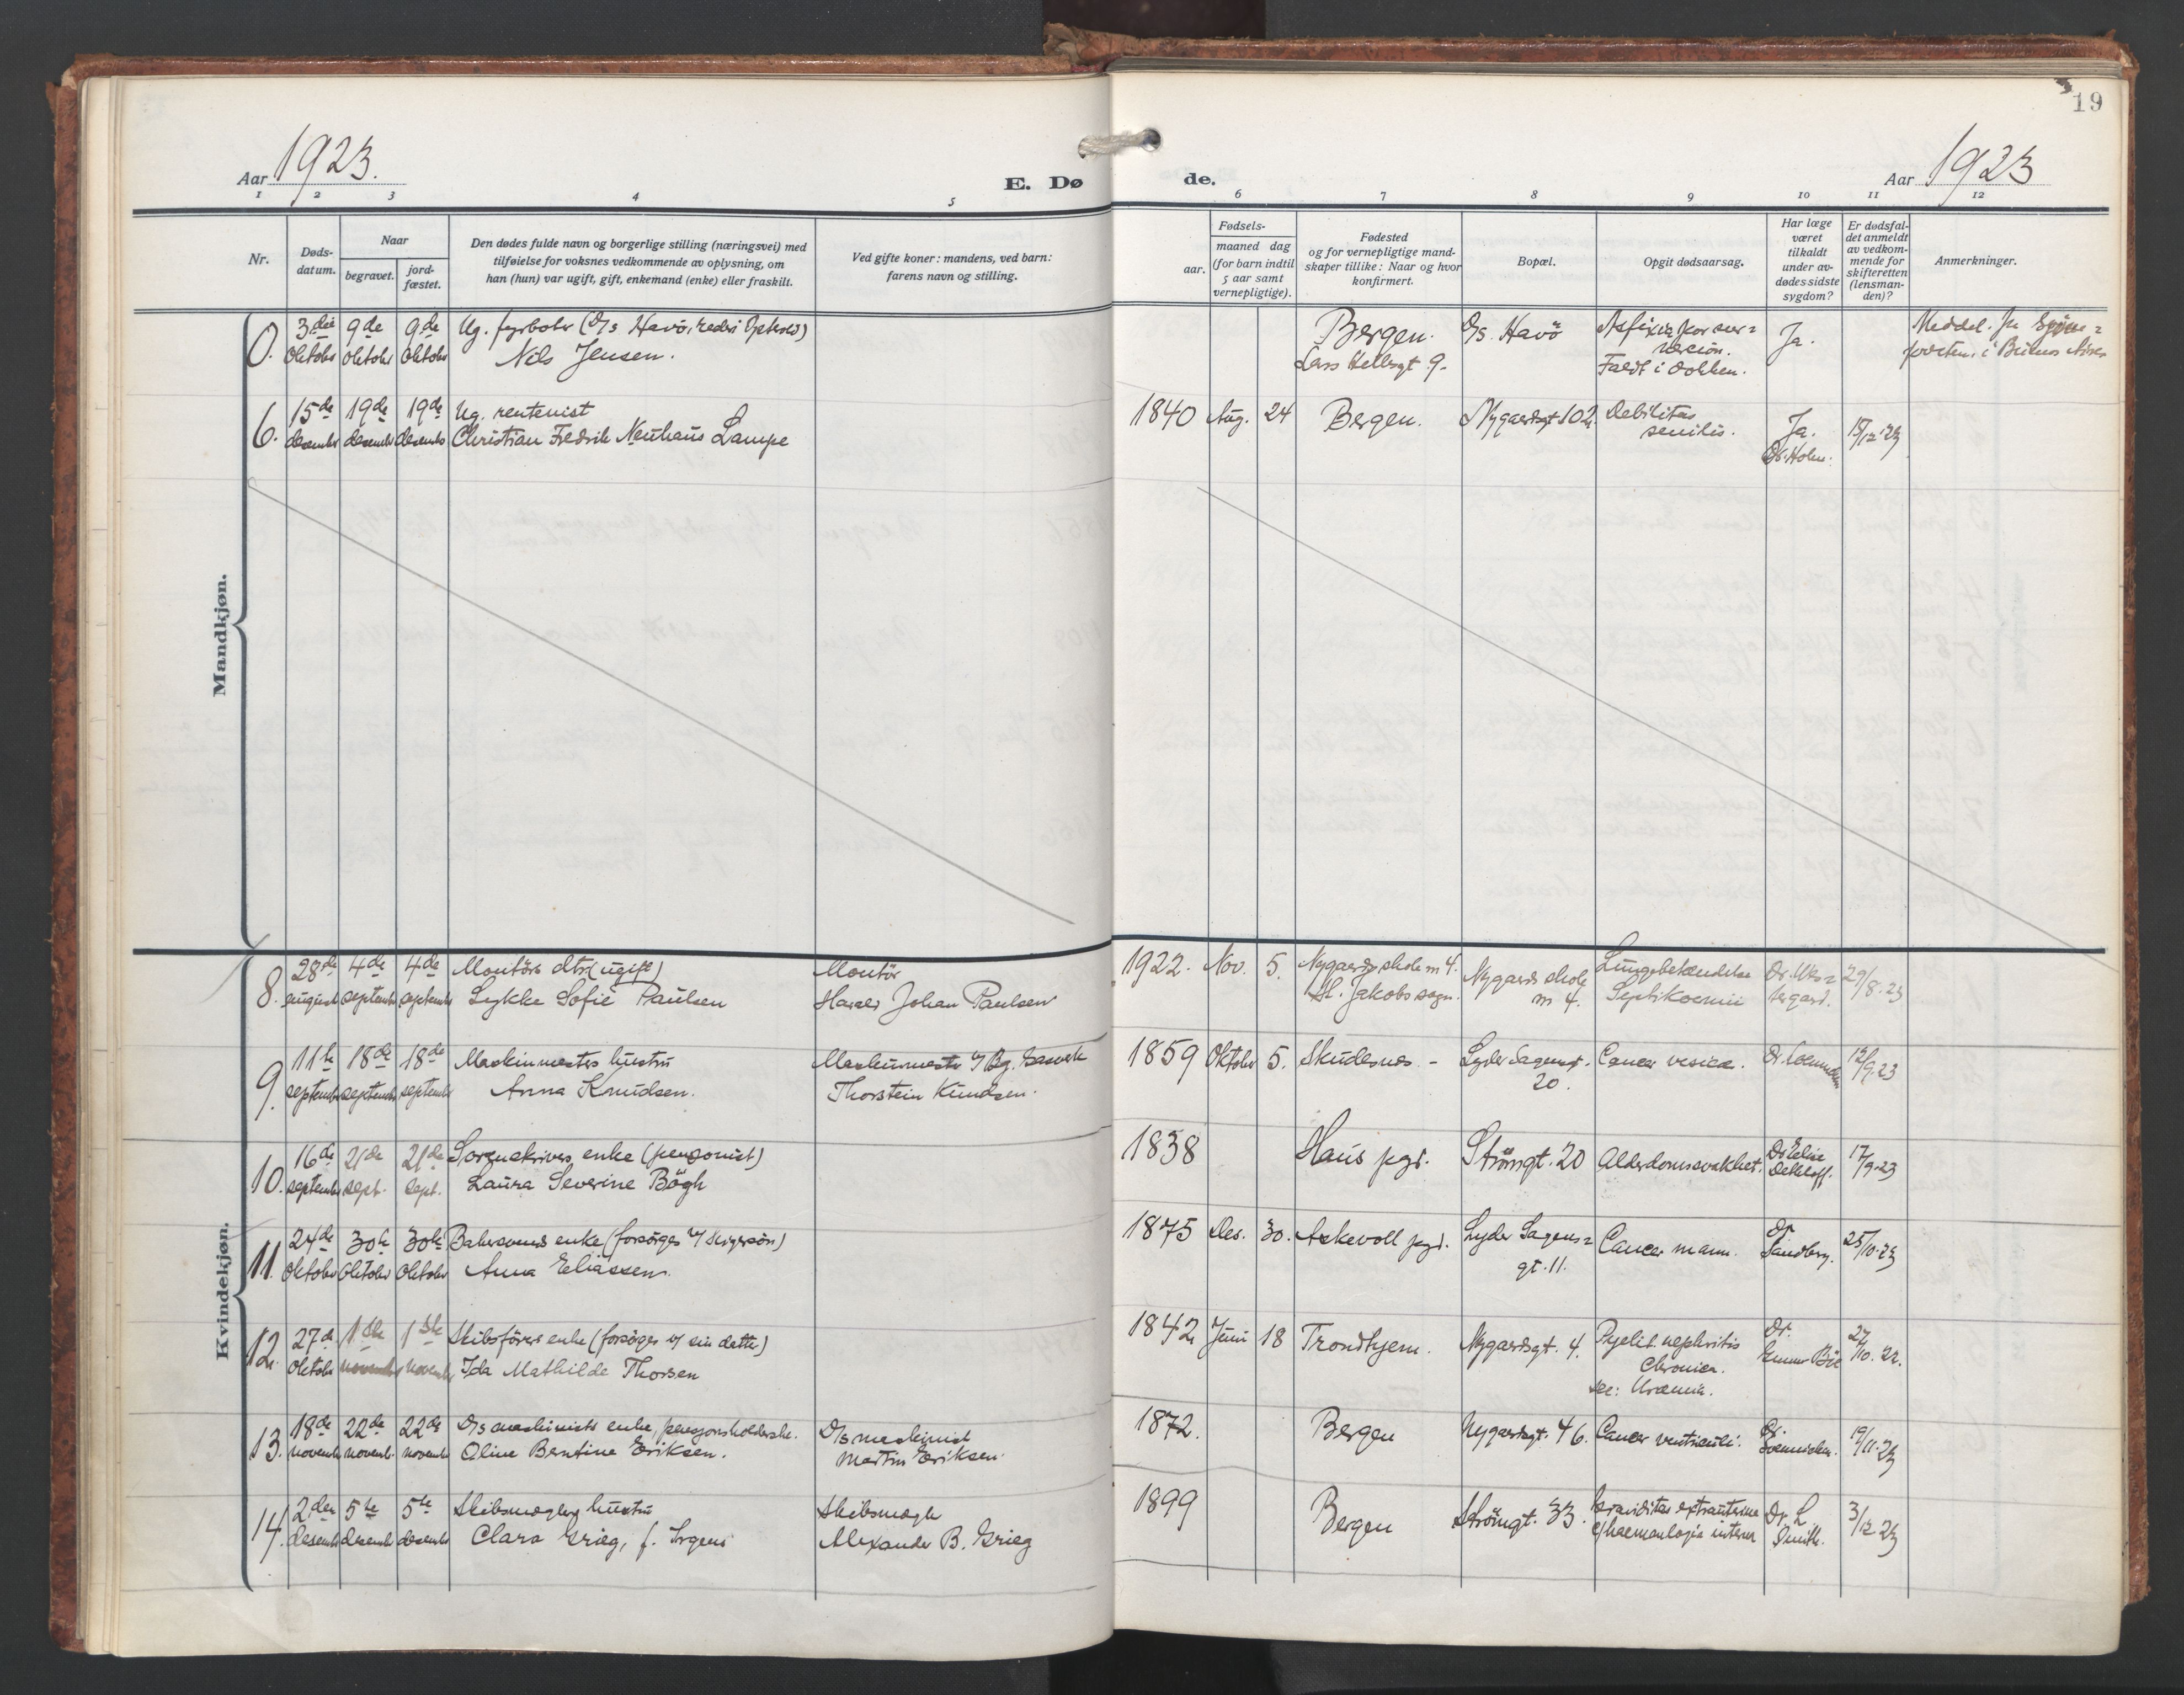 19
Aar 1923.
E. Dø
de.
Aar 1923
1 2 3 4 5 6 7 8 9 10 11 12
Nr.
Døds-
datum.
Naar
begravet.
jord-
fæstet.
Den dødes fulde navn og borgerlige stilling (næringsvei) med
tilføielse for voksnes vedkommende av oplysning, om
han (hun) var ugift, gift, enkemand (enke) eller fraskilt.
Ved gifte koner: mandens, ved barn:
farens navn og stilling.
Fødsels-
aar.
maaned dag
(for barn indtil
5 aar samt
vernepligtige).
Fødested
og for vernepligtige mand-
skaper tillike: Naar og hvor
konfirmert.
Bopæl.
Opgit dødsaarsag.
Har læge
været
tilkaldt
under av-
dødes sidste
sygdom?
Er dødsfal-
det anmeldt
av vedkom-
mende for
skifteretten
(lensman-
den)?
Anmerkninger.
Mandkjøn.
0. 3die 9de 9de Ug. fyrbøter (D/s Havö, rederi
oktober oktober oktober Nils Jensen.
Bergen. D/s. Havö Ja.
Lars Hellesgt 9.
Faldt i dokken.
Meddel. fra
6. 15de 19de 19de Ug. rentenist
desember desember desember Christian Fredrik Neuhaus Lampe
1840 Aug. 24 Bergen. Nygaardsgt 102. Debilitas
senilis.
Ja.
Dr. Holm.
15/12-23
Kvindekjøn.
8. 28de 4de 4de Montörs dtr (ugift) Montör
august september september Lykke Sofie Paulsen Harald Johan Paulsen
1922. Nov. 5. Nygaards skole m 4. Nygaards skole Lungebetændelse
St. Jakobs sogn. m 4. Septikoemii
29/8-23
9. 11te 18de 18de Maskinmesters hustru Maskinmester v/ Bg.
september september september Anna Knudsen. Thorstein Knudsen.
1859 Oktober 5. Skudesnes. - Lyder Sagensgt. Cancer vesicæ.
20.
12/9-23
10. 16de 21de 21de Sorenskrivers enke (pensonist)
september sept. sept. Laura Severine Bögh
1838 Haus pgd. Strömgt. 20 Alderdomssvakhet. Dr Elise
Dethloff.
17/9-23
11. 24de 30te 30te Bakersvends enke (forsörges v/ svigersön)
oktober oktober oktober Anna Eliassen.
1875 Des. 30. Askevoll pgd. Lyder Sagens- Cancer mam. Dr
gt. 11. Sandberg.
25/10-23
12. 27de 1ste 1ste Skibsförers enke (forsörges v/ sin datter)
oktober november november Ida Mathilde Thorsen
1842 Juni 18 Trondhjem. Nygaardsgt. 4. Pyelit. nephritis
chronica.
sec: Uræmia.
Dr.
27/10.23.
13. 18de 22de 22de D/s maskinists enke, pensjonsholderske. D/s maskinist
november novemb. november Oline Bentine Eriksen. Martin Eriksen.
1872. Bergen Nygaardsgt. 46. Cancer ventriculi. Dr.
19/11-23
14. 2den 5te 5te Skibsmeglers hustru Skibsmegler
desember desember desember Clara Grieg, f. Irgens Alexander B. Grieg
1899 Bergen Strömgt. 33. Graviditas extrauterina Dr. L.
interna Smith.
3/12 23